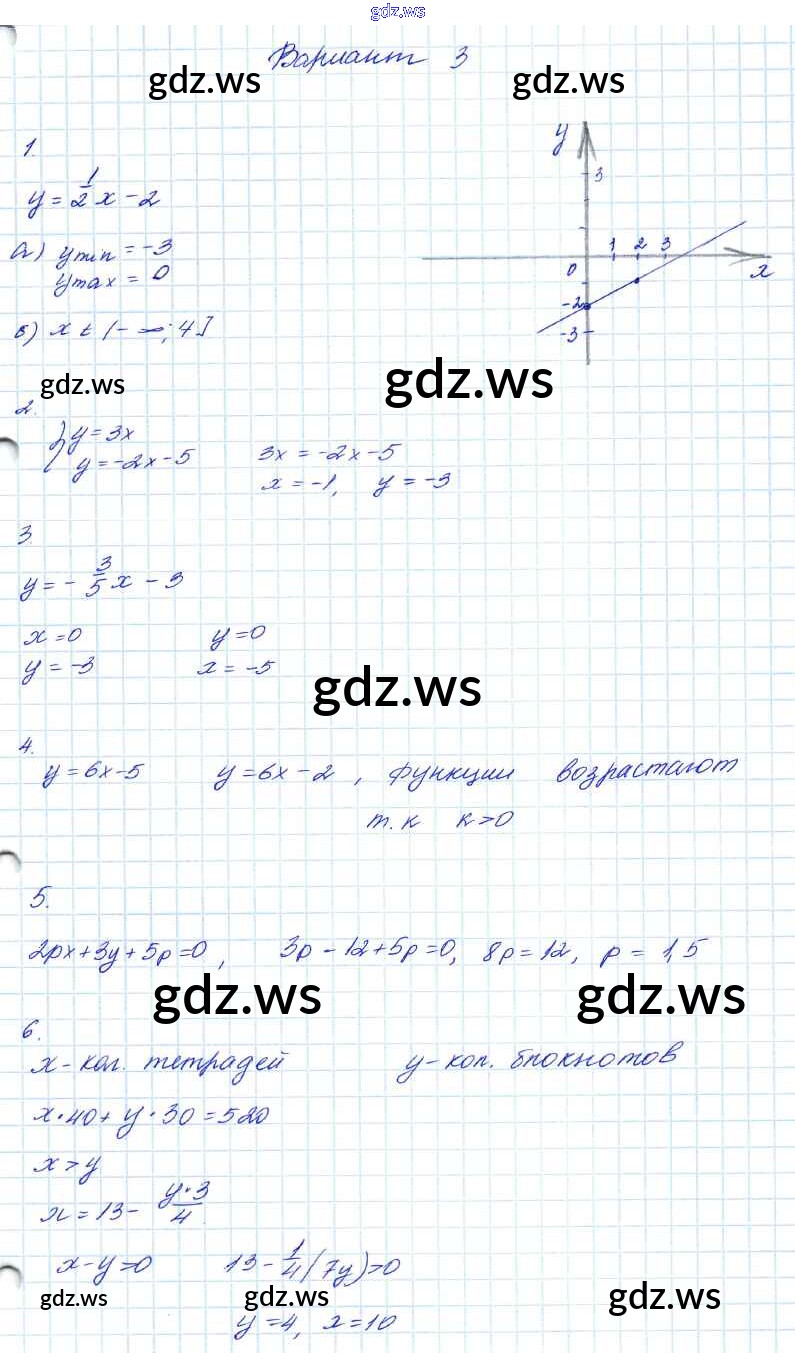 gdz.ws
Вариант 3
gdz.ws gdz.ws
1.
y = 1/2 x - 2
а) ymin = -3
ymax = 0
б) x ∈ (-∞; 4]
y
3
1 2 3
0
x
-2
-3
gdz.ws gdz.ws
2.
{ y = 3x
y = -2x - 5 3x = -2x - 5
x = -1, y = -3
3
y = - 3/5 x - 3
x = 0 y = 0
y = -3 x = -5
gdz.ws
4.
y = 6x - 5 y = 6x - 2, функции возрастают
т.к k > 0
5.
2px + 3y + 5p = 0, 3p - 12 + 5p = 0, 8p = 12, p = 1,5
gdz.ws gdz.ws
6.
x - кол. тетрадей y - кол. блокнотов
x · 40 + y · 30 = 520
x > y
x = 13 - y·3/4
x - y > 0 13 - 1/4 (7y) > 0
gdz.ws gdz.ws gdz.ws
y = 4, x = 10